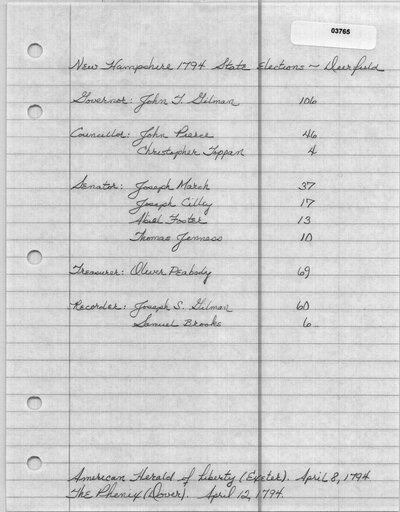 03765
New Hampshire 1794 State Elections ~ Deerfield
Governor: John T. Gilman 106
Councillor: John Pierce 46
Christopher Toppan 4
Senator: Joseph March 37
Joseph Cilley 17
Abiel Foster 13
Thomas Jenness 10
Treasurer: Oliver Peabody 69
Recorder: Joseph S. Gilman 60
Samuel Brooks 6
American Herald of Liberty (Exeter). April 8, 1794
The Phenix (Dover). April 12, 1794.